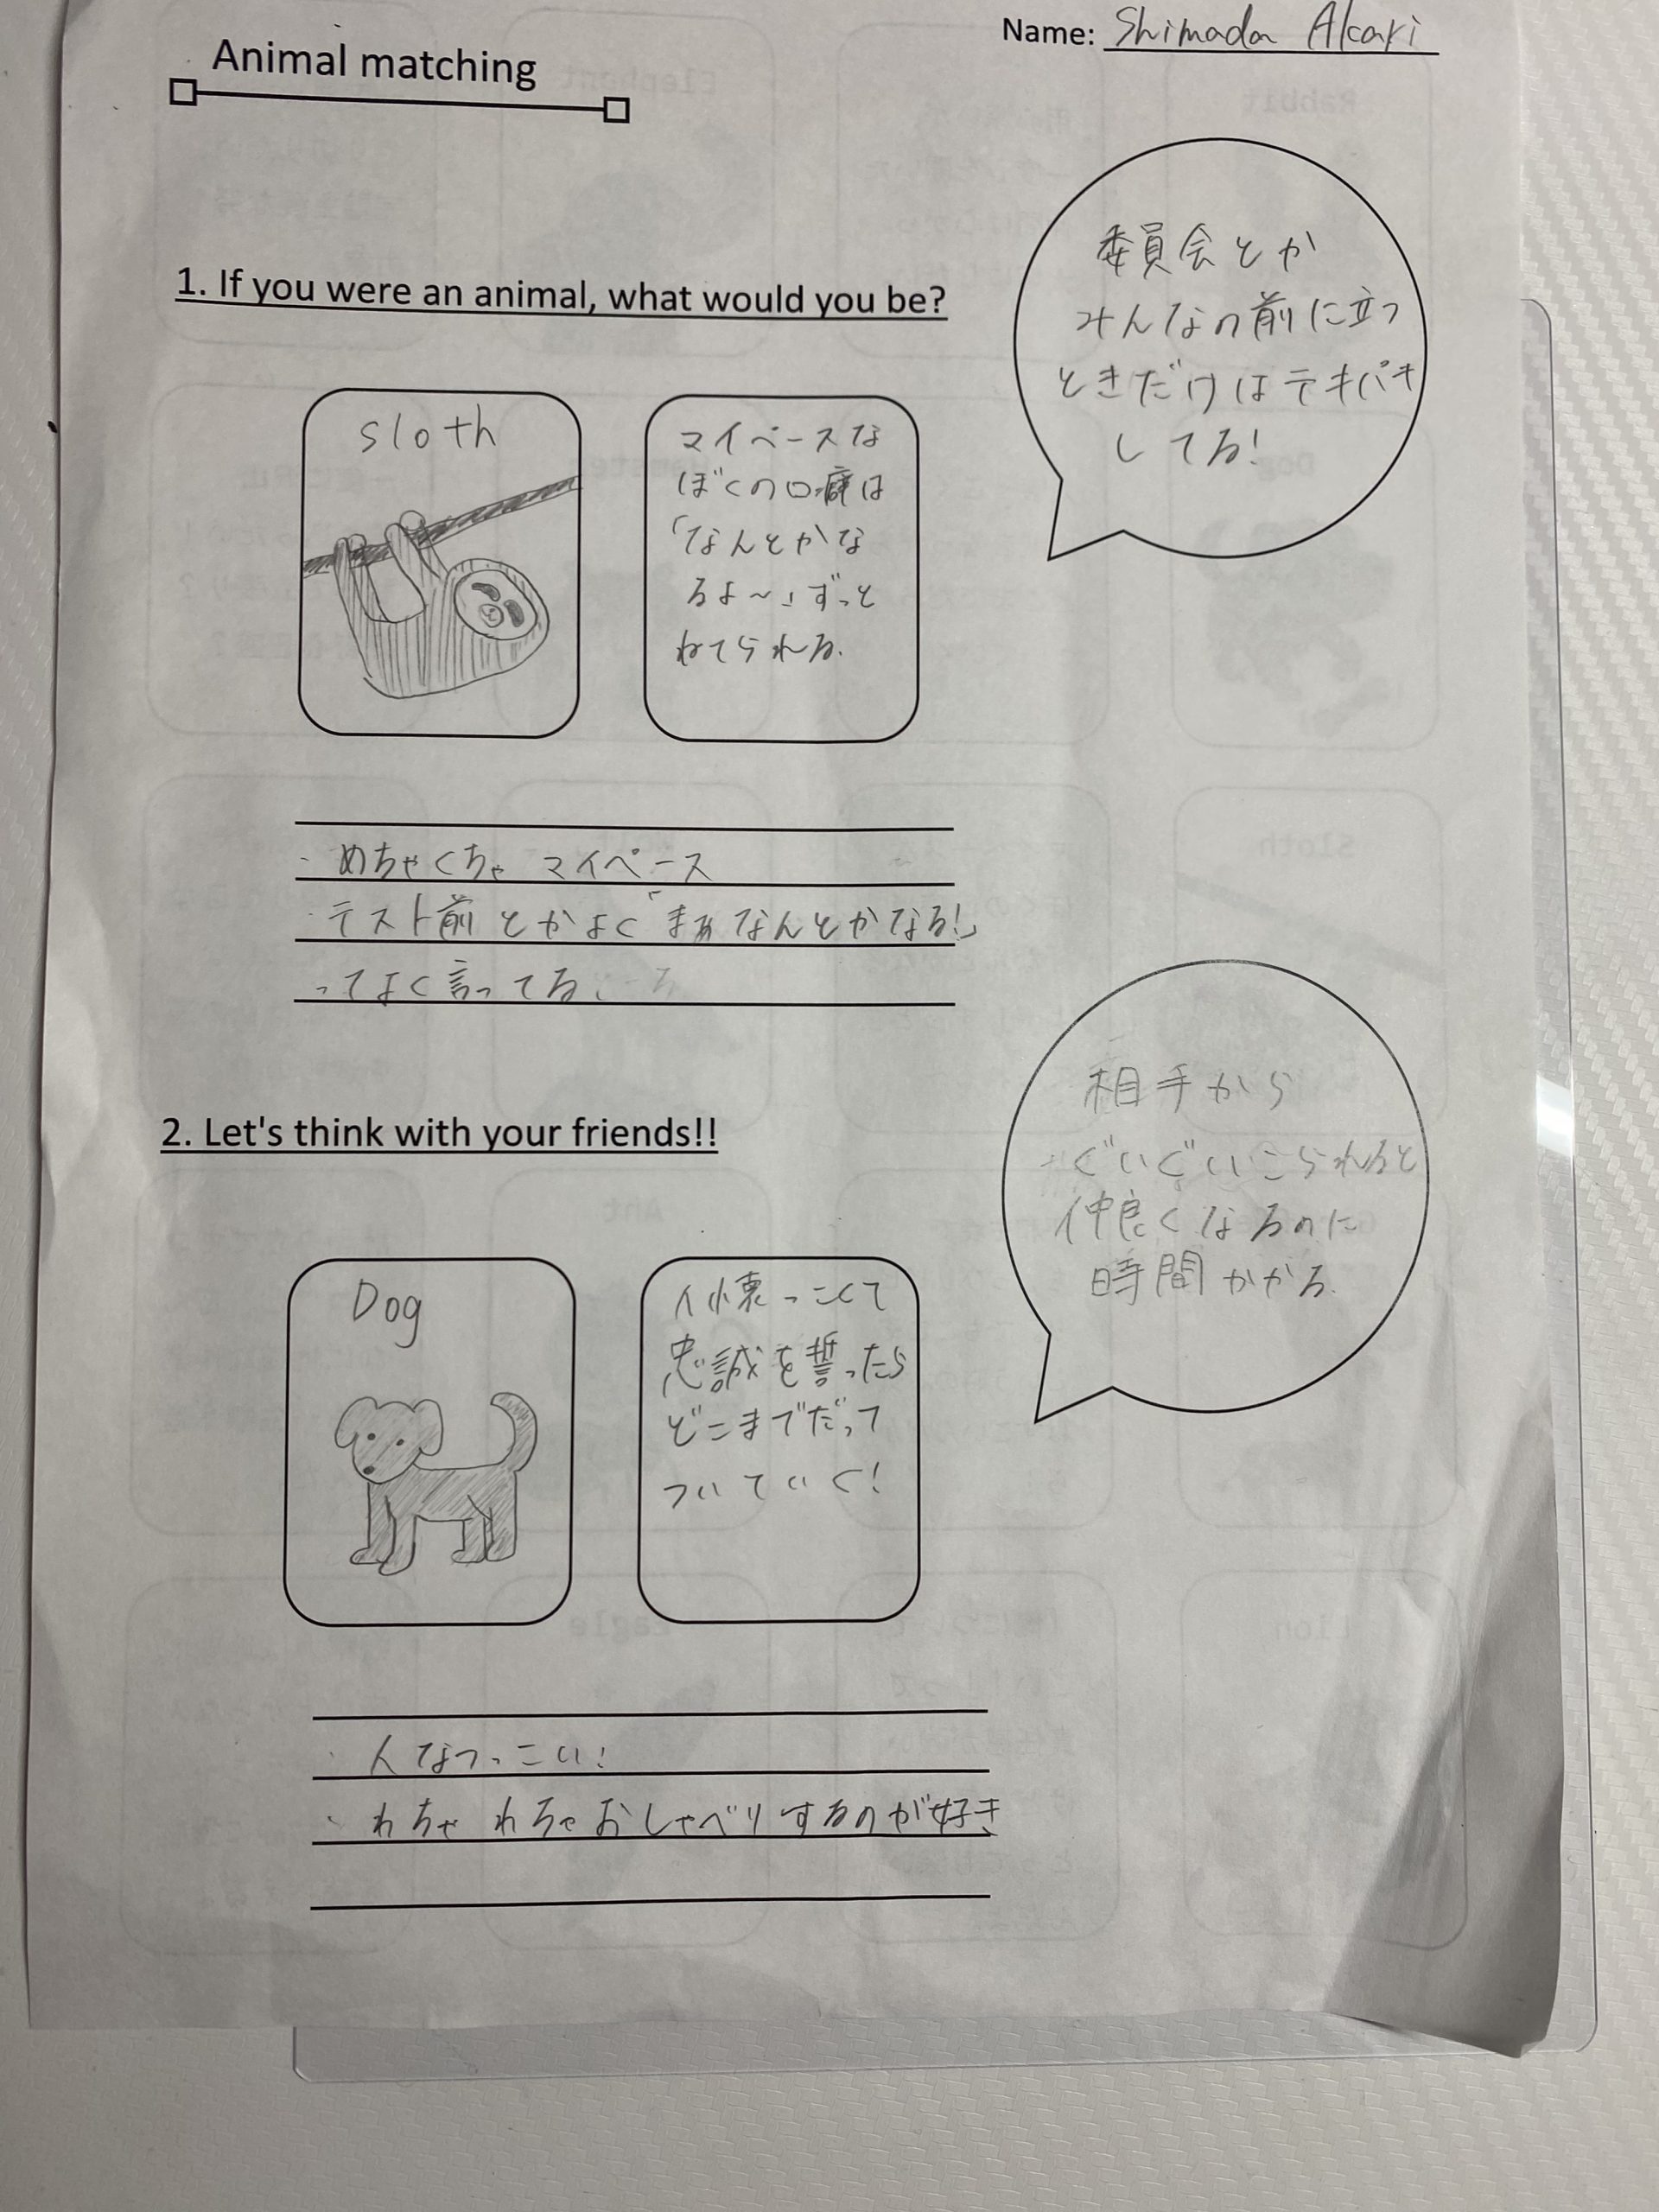 Name: Shimada Akari
Animal matching
1. If you were an animal, what would you be?
委員会とか
みんなの前に立つ
ときだけはテキパキ
してる!
sloth
マイペースな
ぼくの口癖は
「なんとかな
るよ〜」ずっと
ねてられる.
・めちゃくちゃ マイペース
・テスト前とかよく「まぁなんとかなる!」
ってよく言ってる
2. Let's think with your friends!!
相手から
ぐいぐいこられると
仲良くなるのに
時間かかる.
Dog
人懐っこくて
忠誠を誓ったら
どこまでだって
ついていく!
・人なつっこい!
・わちゃわちゃおしゃべりするのが好き